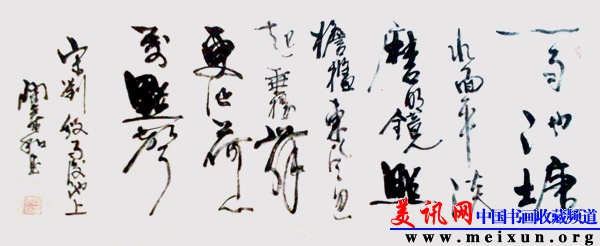 一雨池塘
水面平淡
磨明鏡照
檐楹東风忽
起垂楊舞
更作荷心
萬點聲
宋劉攽雨后池上
美讯网 中国书画收藏频道
www.meixun.org